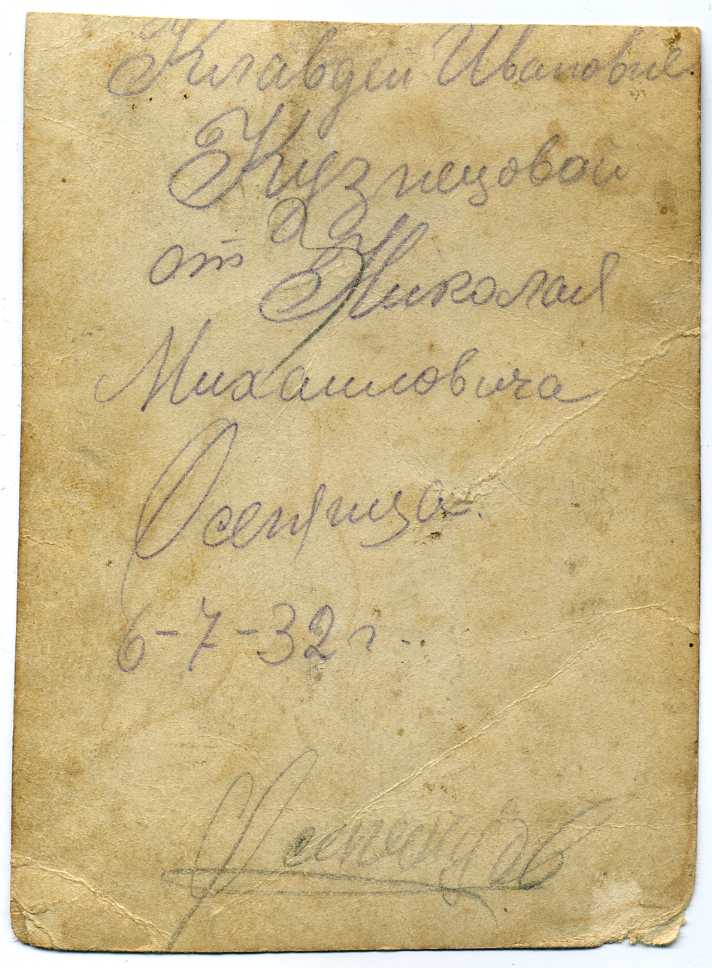 Клавдеи Ивановне
Кузнецовой
от Николая
Михаиловича
Осенянца.
6-7-32 г.